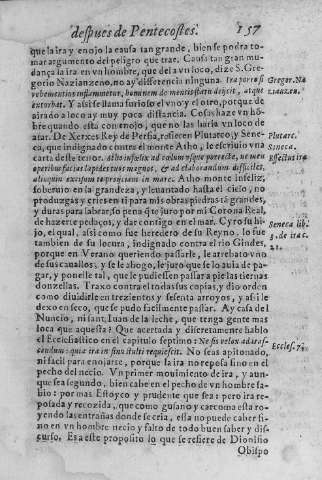 despues de Pentecostes. 157
que la ira y enojo la causa tan grande, bien se podra to-
mar argumento del peligro que trae. Causa tan gran mu-
dança la ira en vn hombre, que del a vn loco, dize S. Gre-
gorio Nazianzeno, no ay diferencia ninguna. Ira porro si
vehementius inflammetur, hominem de mentis statu deijcit, atque
exturbat. Y assi se llama furioso el vno y el otro, porque de
airado a loco ay muy poca distancia. Cosas haze vn hō-
bre quando esta con enojo, que no las haria vn loco de
atar. De Xerxes Rey de Persia, refieren Plutarco, y Sene-
ca, que indignado contra el monte Atho, le escriuio vna
carta deste tenor. Atho infelix ad cœlum vsque porrecte, ne meis
operibus facias lapides magnos, & ad elaborandum difficiles,
alioquin excisum te proijciam in mare. Atho monte infeliz,
soberuio en la grandeza, y leuantado hasta el cielo, no
produzgas y cries en ti para mis obras piedras tā grandes,
y duras para labrar, so pena q̄ te juro por mi Corona Real,
de hazerte pedaços, y dar contigo en el mar. Cyro su hi-
jo, el qual, assi como fue heredero de su Reyno, lo fue
tambien de su locura, indignado contra el rio Gindes,
porque en Verano queriendo passarle, le arrebato vno
de sus cauallos, y se le ahogo, le juro que se lo auia de pa-
gar, y ponelle tal, que le pudiessen passar a pie las tiernas
donzellas. Traxo contra el todas sus copias, y dio orden
como diuidirle en trezientos y sesenta arroyos, y assi le
dexo en seco, que se pudo facilmente passar. Ay casa del
Nuncio, ni sant Iuan de la leche, que tenga gente mas
loca que aquesta? Que acertada y discretamente hablo
el Ecclesiastico en el capitulo septimo: Ne sis velox ad iras-
cendum: quia ira in sinu stulti requiescit. No seas apitonado,
ni facil para enojarte, porque la ira no reposa sino en el
pecho del necio. Vn primer mouimiento de ira, y aun-
que sea segundo, bien cabe en el pecho de vn hombre sa-
bio: por mas Estoyco y prudente que sea: pero ira re-
posada y recozida, que como gusano y carcoma esta ro-
yendo las entrañas donde se cria, esta no puede caber si-
no en vn hombre necio y falto de todo buen saber y dis-
curso. Esa este proposito lo que se refiere de Dionisio
Obispo
Gregor. Na
zianzen.
Plutarc.
Seneca.
Effectus iræ
Seneca lib.
3. de ira c.
21.
Eccles. 7.